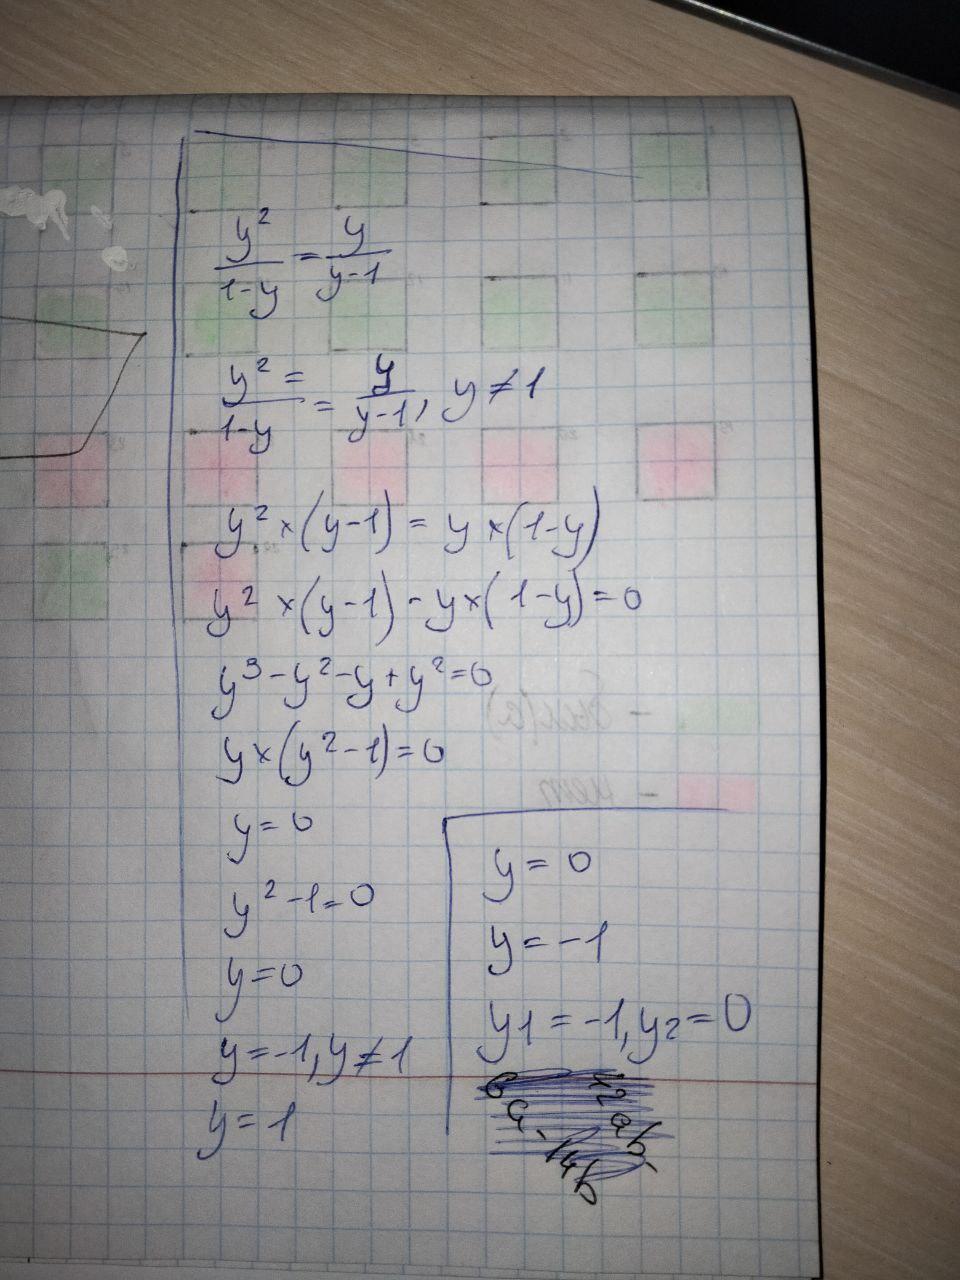 y²/1-y = y/y-1
y²=/1-y = y/y-1, y≠1
y²×(y-1) = y×(1-y)
y²×(y-1)-y×(1-y)=0
y³-y²-y+y²=0
y×(y²-1)=0
y=0
y²-1=0
y=0
y=-1, y≠1
y=1
y=0
y=-1
y1=-1, y2=0